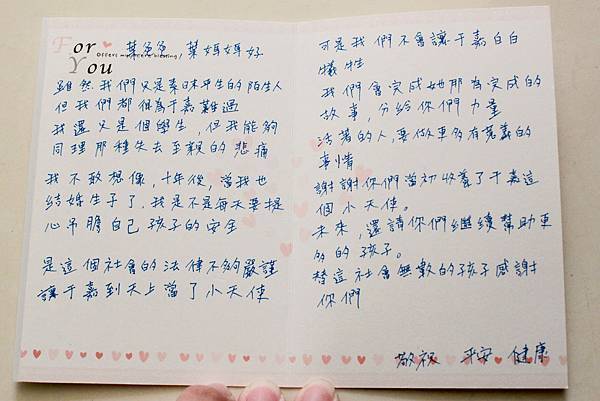 For You
Offers my sincere blessing!
葉爸爸 葉媽媽好
雖然我們只是素昧平生的陌生人
但我們都很為于嘉難過
我還只是個學生,但我能夠
同理那種失去至親的悲痛
我不敢想像,十年後,當我也
結婚生子了,我是不是每天要提
心吊膽自己孩子的安全
是這個社會的法律不夠嚴謹
讓于嘉到天上當了小天使
可是我們不會讓于嘉白白
犧牲
我們會完成她那為完成的
故事,分給你們力量
活著的人,要做更多有意義的
事情
謝謝你們當初收養了于嘉這
個小天使。
未來,還請你們繼續幫助更
多的孩子。
替這社會無數的孩子感謝
你們
敬祝 平安 健康